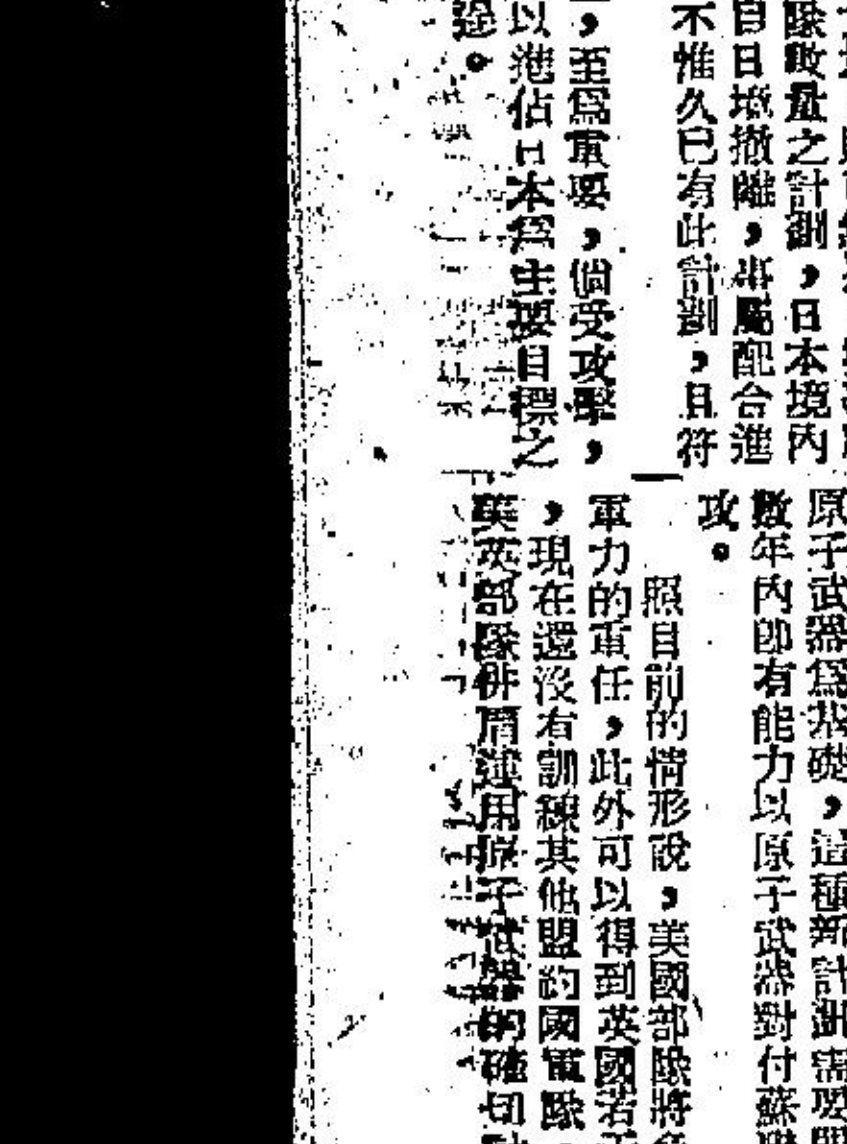 隊數量之計劃，日本境內
自日境撤離，事屬配合進
不惟久已有此計劃，且符
，至爲重要，倘受攻擊，
以進佔日本爲主要目標之
途。
原子武器爲基礎，這種新計劃需要
數年內即有能力以原子武器對付蘇
攻。
照目前的情形說，美國部隊將
軍力的重任，此外可以得到英國若
，現在還沒有訓練其他盟約國軍隊，
美英部隊併肩運用原子武器的確切